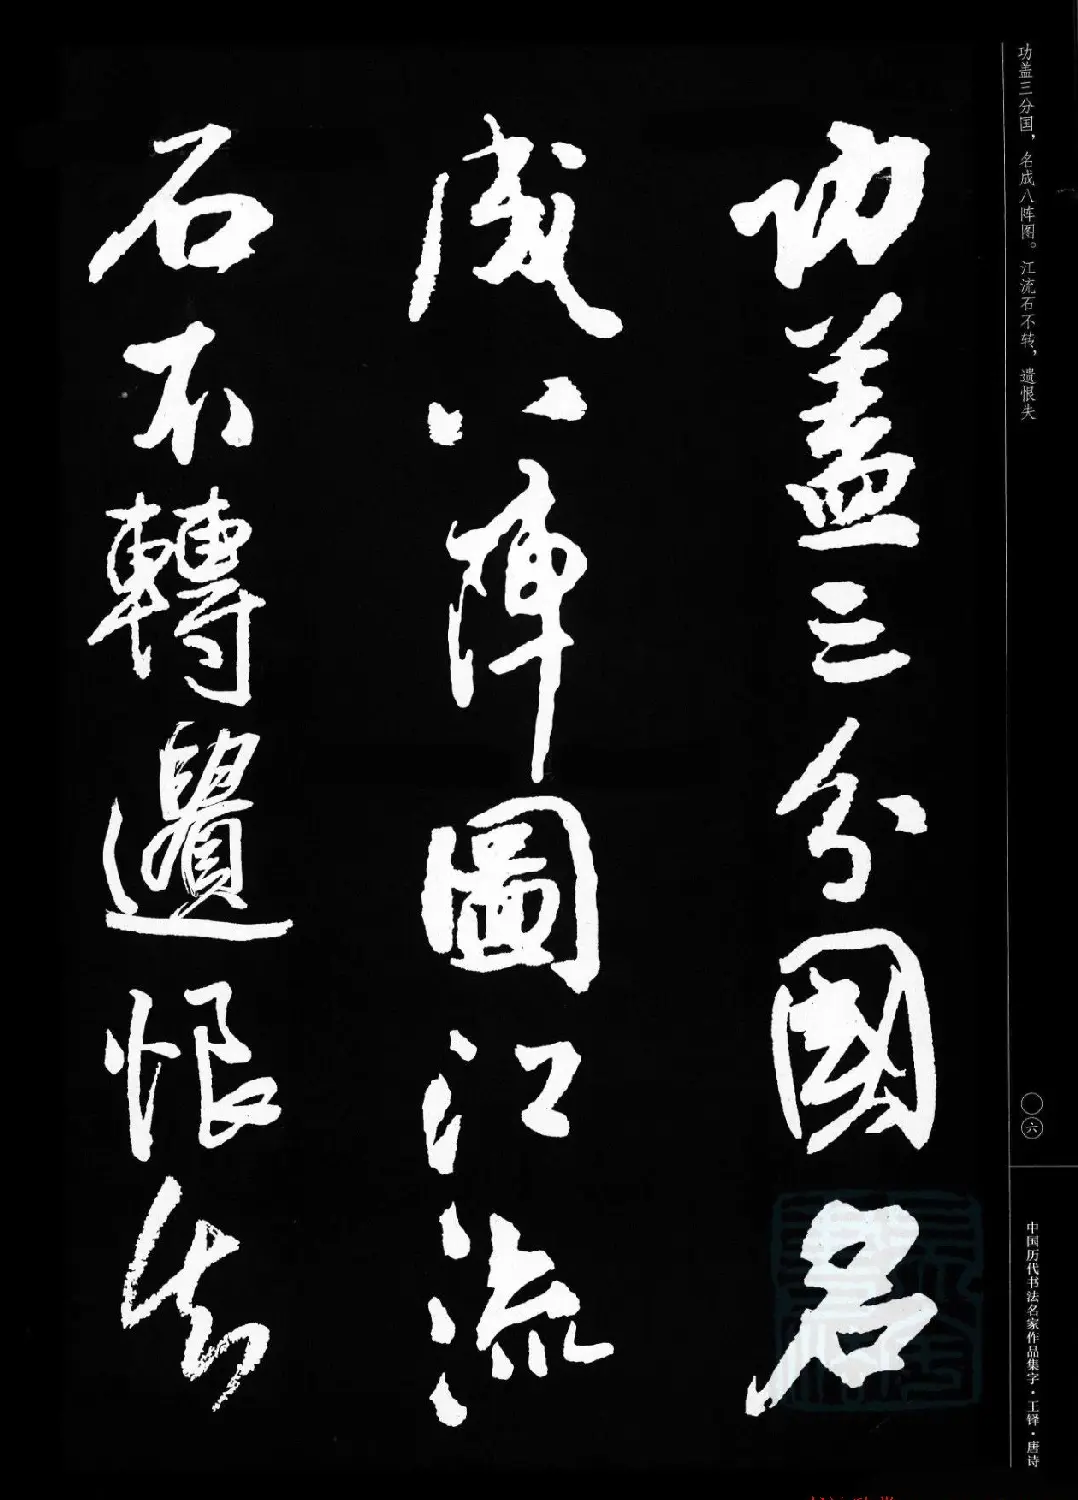 功盖三分國名
成八陣圖江流
石不轉遺恨失
功盖三分国，名成八阵图。江流石不转，遗恨失
〇六
中国历代书法名家作品集字·王铎·唐诗